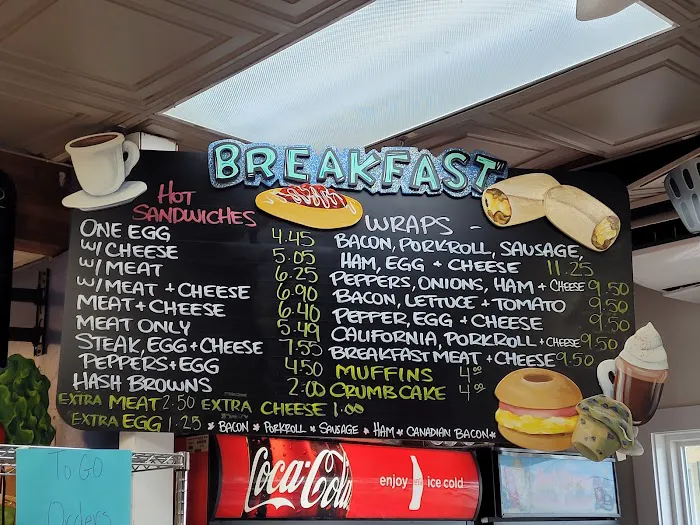 BREAKFAST
HOT
SANDWICHES
ONE EGG 4.45
W/ CHEESE 5.05
W/ MEAT 6.25
W/ MEAT + CHEESE 6.90
MEAT + CHEESE 6.40
MEAT ONLY 5.49
STEAK, EGG + CHEESE 7.55
PEPPERS + EGG 4.50
HASH BROWNS 2.00
EXTRA MEAT 2.50 EXTRA CHEESE 1.00
EXTRA EGG 1.25
WRAPS -
BACON, PORKROLL, SAUSAGE,
HAM, EGG + CHEESE 11.25
PEPPERS, ONIONS, HAM + CHEESE 9.50
BACON, LETTUCE + TOMATO 9.50
PEPPER, EGG + CHEESE 9.50
CALIFORNIA, PORKROLL + CHEESE 9.50
BREAKFAST MEAT + CHEESE 9.50
MUFFINS 4.00
CRUMBCAKE 4.00
* BACON * PORKROLL * SAUSAGE * HAM * CANADIAN BACON *
Coca-Cola
enjoy ice cold
To GO
Orders